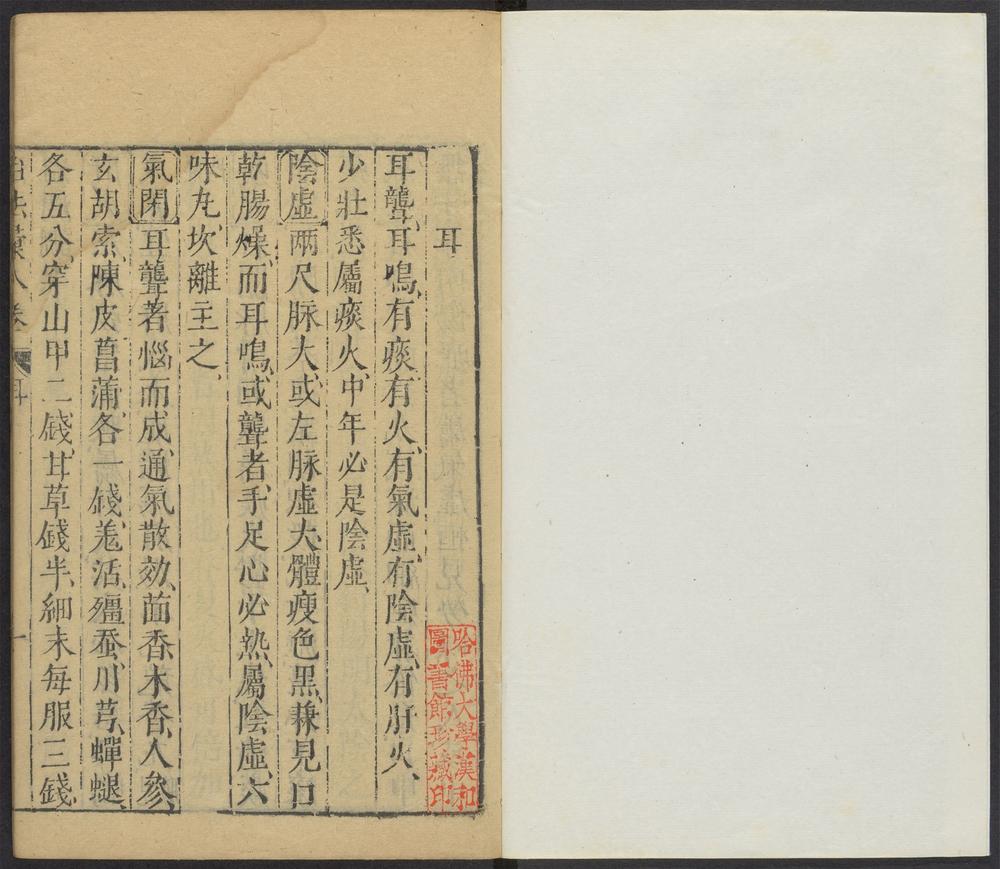 耳
耳聾、耳鳴、有痰、有火、有氣虛、有陰虛、有肝火、
少壯悉屬痰火、中年必是陰虛、
陰虛 兩尺脉大、或左脉虛大、體瘦色黑、兼見口
乾腸燥、而耳鳴、或聾者、手足心必熱、屬陰虛、六
味丸、坎離主之、
氣閉 耳聾著惱而成、通氣散効、茴香、木香、人參、
玄胡索、陳皮、菖蒲、各一錢、羗活、殭蚕、川芎、蟬蛻、
各五分、穿山甲二錢、甘草錢半、細末每服三錢、
卷
耳
一
哈佛大學漢和
圖書館珍藏印